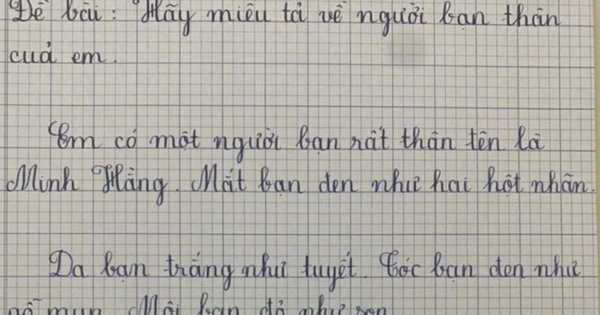 Đề bài: Hãy miêu tả về người bạn thân
của em.
Em có một người bạn rất thân tên là
Minh Hằng. Mắt bạn đen như hai hột nhãn.
Da bạn trắng như tuyết. Tóc bạn đen như
gỗ mun. Môi bạn đỏ như son